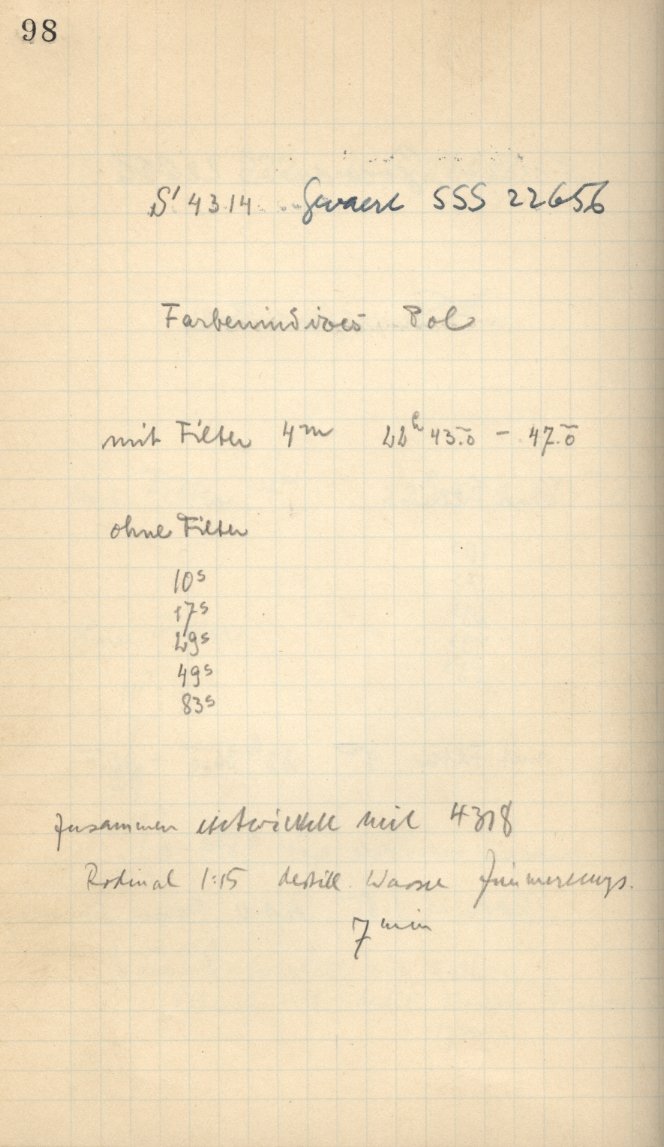 98
S 4314 Gevaert SSS 22656
Farbenindices Pol
mit Filter 4m 22h 43.0 - 47.0
ohne Filter
10s
17s
29s
49s
83s
zusammen entwickelt mit 4318
Rodinal 1:15 destill. Wasser
7 min